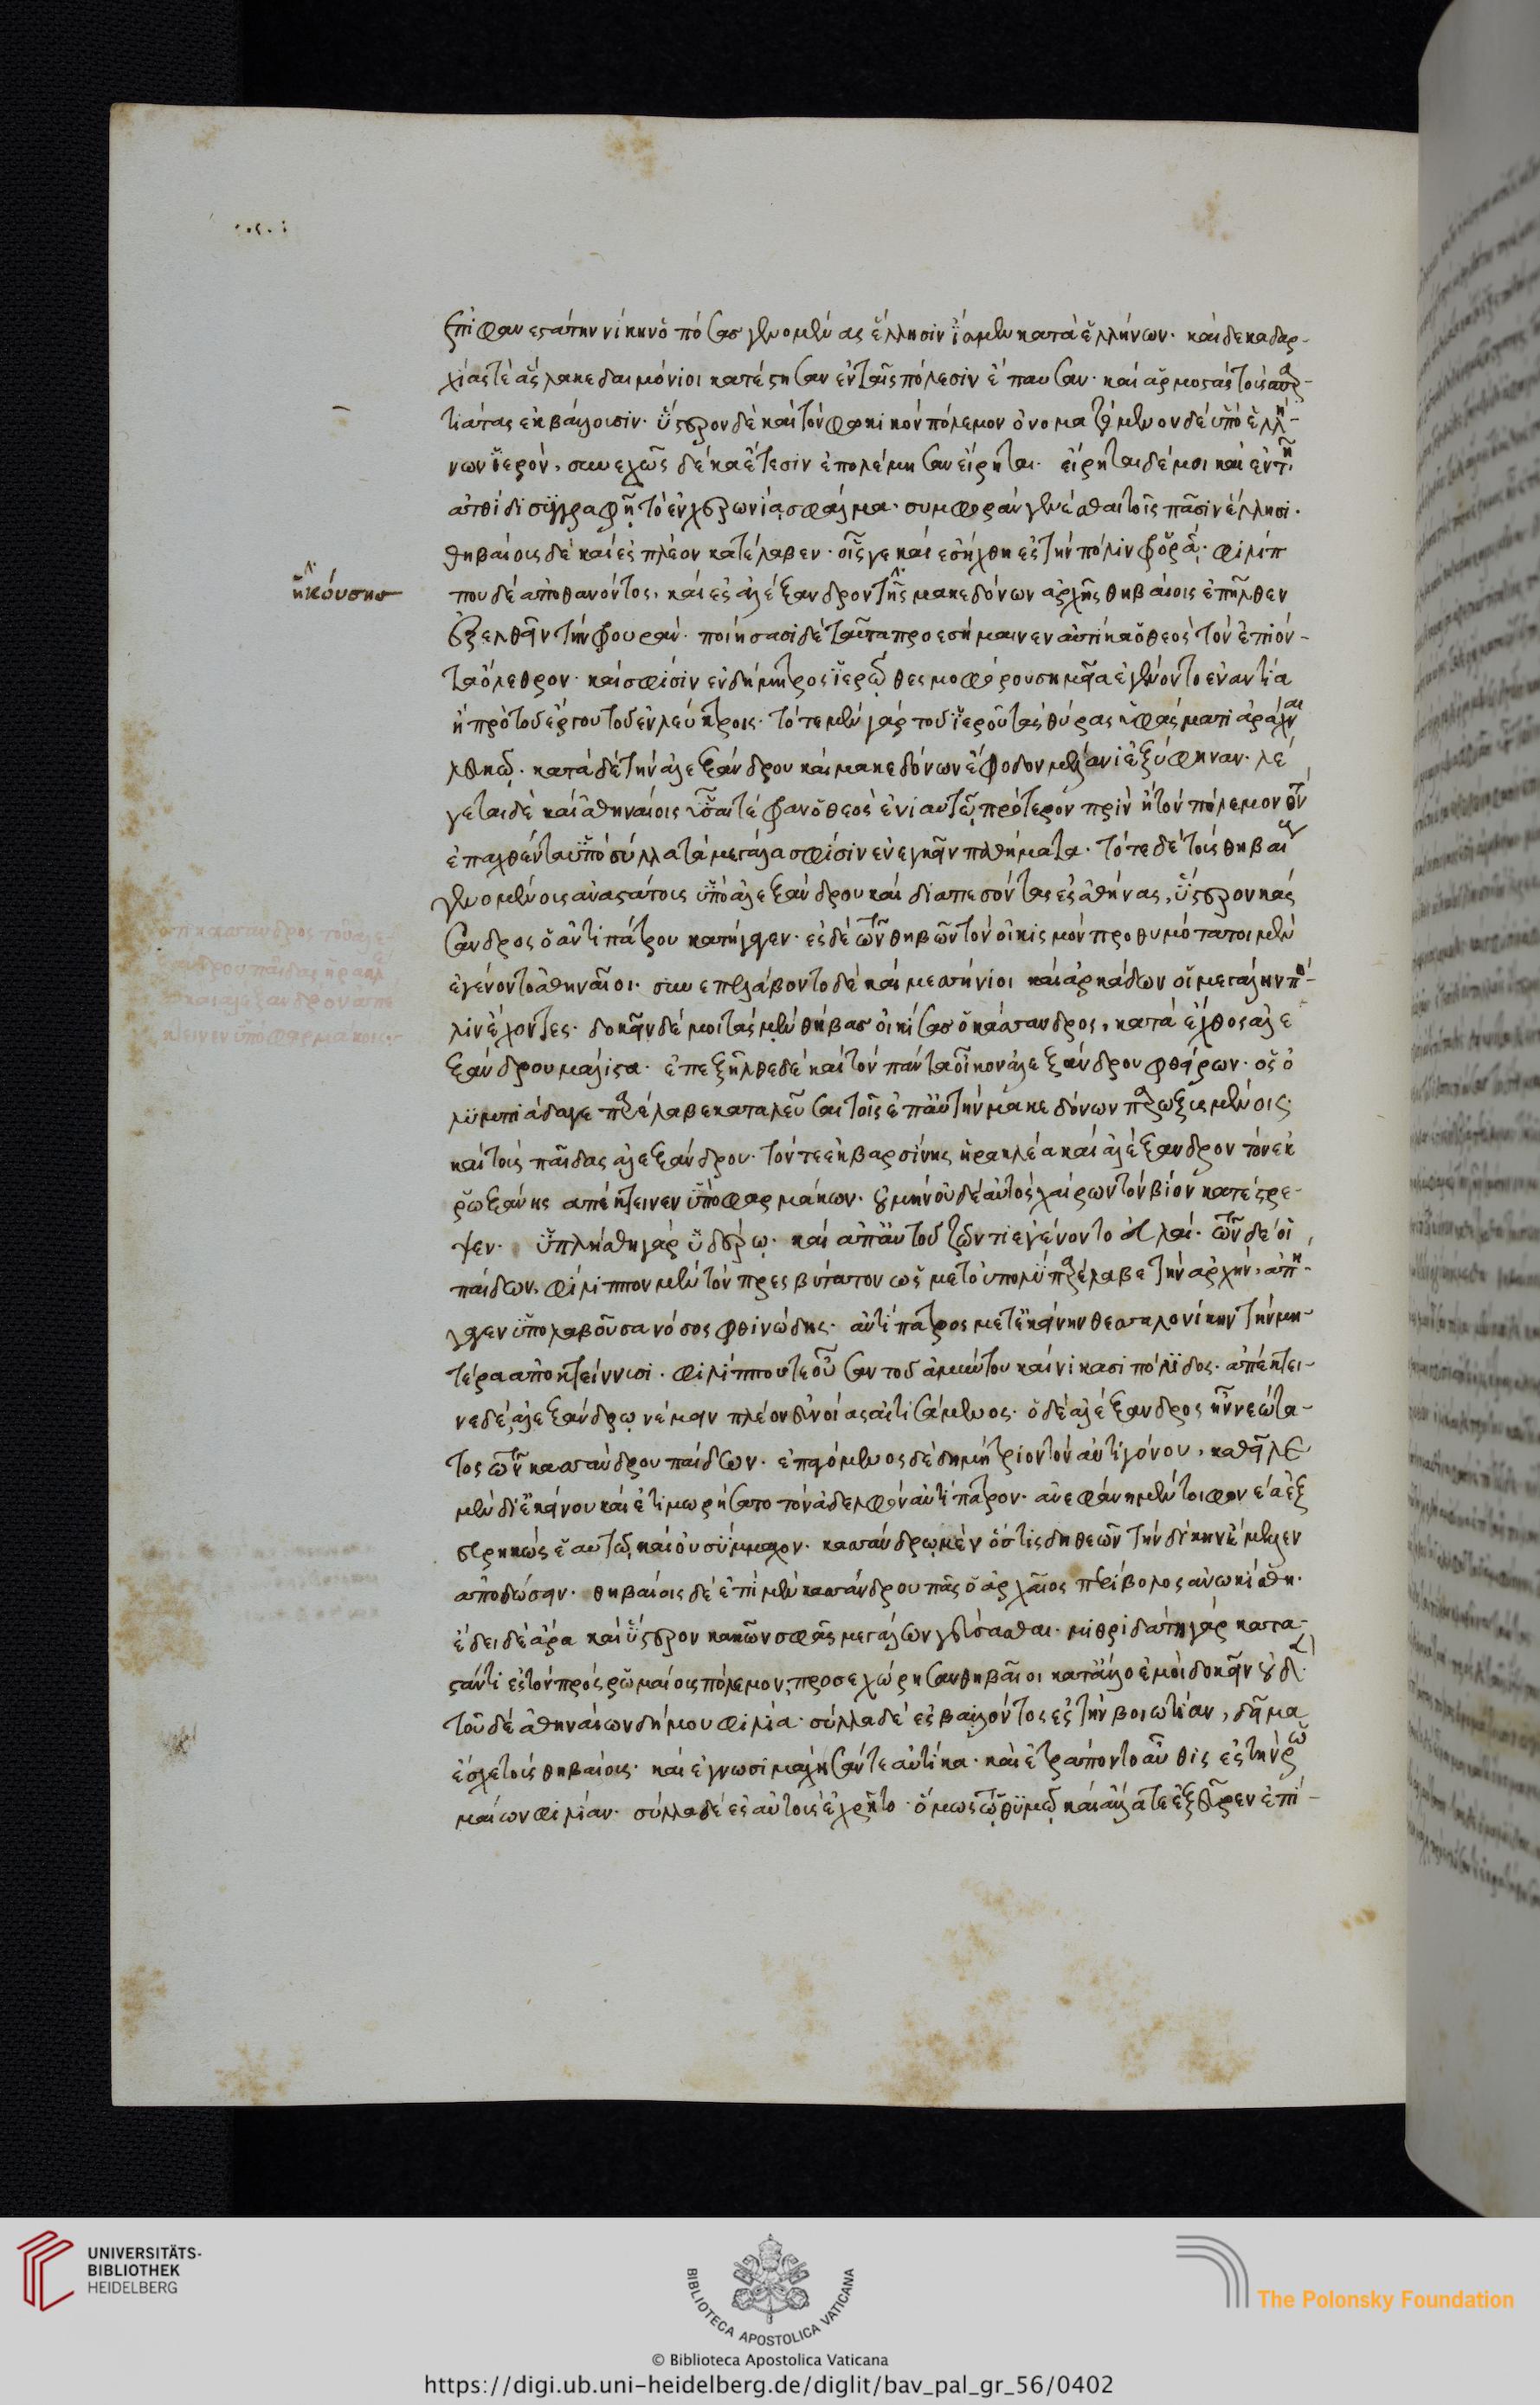 ἐπιφανεστάτην νίκην ὁπόσας γενομένας ἕλλησιν ἴσμεν κατὰ ἑλλήνων· καὶ δεκαδαρ-
χίας τὲ ἃς λακεδαιμόνιοι κατέστησαν ἐν ταῖς πόλεσιν ἔπαυσαν· καὶ ἁρμοστὰς τοὺς σπαρ-
τιάτας ἐκβάλουσιν· ὕστερον δὲ καὶ τὸν φωκικὸν πόλεμον ὀνομαζόμενον δὲ ὑπὸ ἑλλή-
νων ἱερόν, συνεχῶς δέκα ἔτεσιν ἐπολέμησαν εἴρηται· εἴρηται δέ μοι καὶ ἐν τῆι
ἀτθίδι συγγραφῆι τὸ ἐν χερωνίαι σφάλμα· συμφορὰν γενέσθαι τοῖς πᾶσιν ἕλλησι·
θηβαίοις δὲ καὶ ἐς πλέον κατέλαβεν· οἷς γε καὶ ἐσήχθη ἐς τὴν πόλιν φρορά· φιλίπ
που δὲ ἀποθανόντος, καὶ ἐς ἀλέξανδρον τῆς μακεδόνων ἀρχῆς θηβαίοις ἐπῆλθεν
ἡκούσης
ἐξελθεῖν τὴν φρουράν· ποιήσασι δὲ ταῦτα προεσήμαινεν αὐτίκα ὁ θεὸς τὸν ἐπιόν-
τα ὄλεθρον· καὶ σφίσιν ἐν δήμητρος ἱερῶι θεσμοφόρου σημεῖα ἐγένοντο ἐναντία
ἢ πρὸ τοῦ ἔργου τοῦ ἐν λεύκτροις· τότε μὲν γὰρ τοῦ ἱεροῦ τὰς θύρας ὑφάσματι ἀράχναι
λευκῶι· κατὰ δὲ τὴν ἀλεξάνδρου καὶ μακεδόνων ἔφοδον μέλανι ἐξύφηναν· λέ
γεται δὲ καὶ ἀθηναίοις ὗσαι τέφραν ὁ θεὸς ἐνιαυτῶι πρότερον πρὶν ἢ τὸν πόλεμον
ἐπαχθέντα ὑπὸ σύλλα τὰ μεγάλα σφίσιν ἐνεγκεῖν παθήματα· τότε δὲ τοὺς θηβαί
γενομένοις ἀναστάτοις ὑπὸ ἀλεξάνδρου καὶ διαπεσόντας ἐς ἀθήνας, ὕστερον κάσ
σανδρος ὁ ἀντιπάτρου κατήγαγεν· ἐς δὲ τῶν θηβῶν τὸν οἰκισμὸν προθυμότατοι μὲν
ἐγένοντο ἀθηναῖοι· συνεπελάβοντο δὲ καὶ μεσσήνιοι καὶ ἀρκάδων οἱ μεγάλην πό-
λιν ἔχοντες· δοκεῖν δέ μοι τὰς μὲν θήβας οἰκίσας ὁ κάσσανδρος, κατὰ ἔχθος ἀλε
ξάνδρου μάλιστα· ἐπεξῆλθε δὲ καὶ τὸν πάντα οἶκον ἀλεξάνδρου φθείρων· ὃς ὀ
λυμπιάδα γε παρέλαβε καταλεῦσαι τοῖς ἐπ' αὐτὴν μακεδόνων παρωξυσμένοις·
καὶ τοὺς παῖδας ἀλεξάνδρου· τόν τε ἐκ βαρσίνης ἡρακλέα καὶ ἀλέξανδρον τὸν ἐκ
ῥωξάνης ἀπέκτεινεν ὑπὸ φαρμάκων· οὐ μὴν οὐδὲ αὐτὸς χαίρων τὸν βίον κατέστρε-
ψεν· ὑπλήσθη γὰρ ὑδέρωι· καὶ ἀπ' αὐτοῦ ζῶντι ἐγένοντο εὐλαί· τῶν δέ οἱ
παίδων, φίλιππον μὲν τὸν πρεσβύτατον ὡς μετ' οὐ πολὺ παρέλαβε τὴν ἀρχήν, ἀπή-
γαγεν ὑπολαβοῦσα νόσος φθινώδης· ἀντίπατρος μετ' ἐκεῖνον θεσσαλονίκην τὴν μη-
τέρα ἀποκτείννυσι· φιλίππου τε οὖσαν τοῦ ἀμύντου καὶ νικασιπόλιδος· ἀπέκτει-
νε δὲ ἀλεξάνδρωι νέμειν πλέον εὐνοίας αἰτισάμενος· ὁ δὲ ἀλέξανδρος ἦν νεώτα-
τος τῶν κασσάνδρου παίδων· ἐπαγόμενος δὲ δημήτριον τὸν ἀντιγόνου, καθεῖλε
μὲν δι' ἐκείνου καὶ ἐτιμωρήσατο τὸν ἀδελφὸν ἀντίπατρον· ἀνεφάνη μέντοι φονέα ἐξ
ευρηκὼς ἑαυτῶι καὶ οὐ σύμμαχον· κασσάνδρωι μὲν ὅστις δὴ θεῶν τὴν δίκην ἔμελλεν
ἀποδώσειν· θηβαίοις δὲ ἐπὶ μὲν κασσάνδρου πᾶς ὁ ἀρχαῖος περίβολος ἀνωκίσθη·
ἔδει δὲ ἄρα καὶ ὕστερον κακῶν σφᾶς μεγάλων γεύσασθαι· μιθριδάτηι γὰρ κατα-
στάντι ἐς τὸν πρὸς ῥωμαίους πόλεμον, προσεχώρησαν θηβαῖοι κατ' ἄλλο ἐμοὶ δοκεῖν οὐδέν·
τοῦ δὲ ἀθηναίων δήμου φιλίαι· σύλλα δὲ ἐσβαλόντος ἐς τὴν βοιωτίαν, δεῖμα
ἔσχε τοὺς θηβαίους· καὶ ἐγνωσιμάχησάν τε αὐτίκα· καὶ ἐτράποντο αὖθις ἐς τὴν ῥω
μαίων φιλίαν· σύλλας δὲ ἐς αὐτοὺς ἐχρῆτο ὅμως τῶι θυμῶι καὶ ἄλλα τε ἐξεῦρεν ἐπὶ
ὅτι κάσσανδρος τοῦ ἀλε-
ξάνδρου παῖδας ἡρακλ
καὶ ἀλέξανδρον ἀπέ
κτεινεν ὑπὸ φαρμάκοις
UNIVERSITÄTS-
BIBLIOTHEK
HEIDELBERG
BIBLIOTECA APOSTOLICA VATICANA
The Polonsky Foundation
© Biblioteca Apostolica Vaticana
https://digi.ub.uni-heidelberg.de/diglit/bav_pal_gr_56/0402